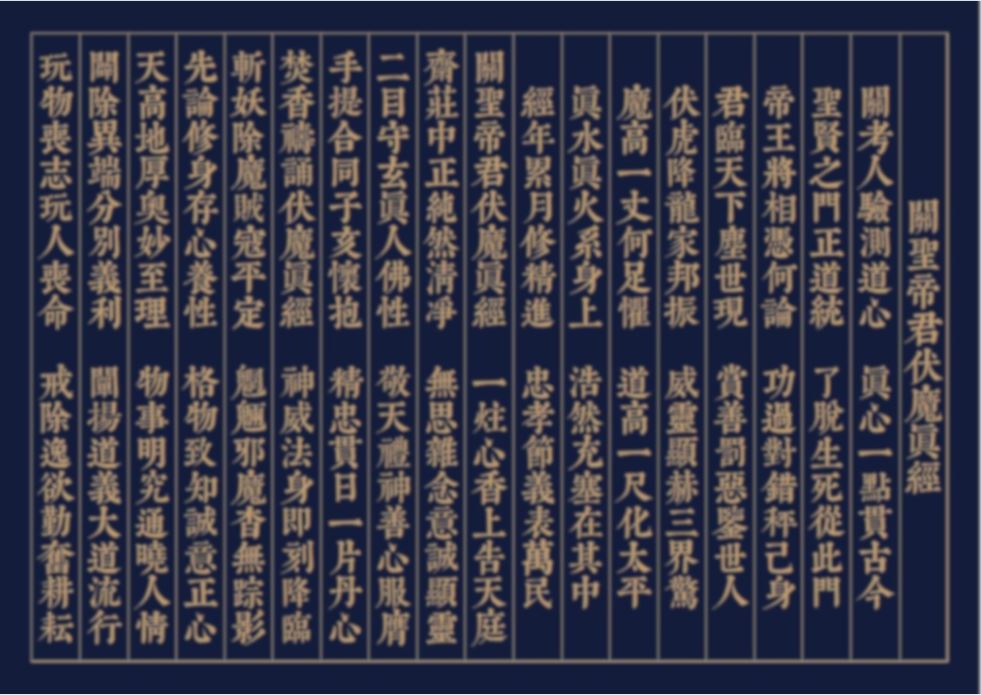 關聖帝君伏魔眞經
關考人驗測道心　眞心一點貫古今
聖賢之門正道統　了脫生死從此門
帝王將相憑何論　功過對錯秤己身
君臨天下塵世現　賞善罰惡鑒世人
伏虎降龍家邦振　威靈顯赫三界驚
魔高一丈何足懼　道高一尺化太平
眞水眞火系身上　浩然充塞在其中
經年累月修精進　忠孝節義表萬民
關聖帝君伏魔眞經　一炷心香上告天庭
齋莊中正純然淸淨　無思雜念意誠顯靈
二目守玄眞人佛性　敬天禮神善心服膺
手提合同子亥懷抱　精忠貫日一片丹心
焚香禱誦伏魔眞經　神威法身即刻降臨
斬妖除魔賊寇平定　魍魎邪魔杳無踪影
先論修身存心養性　格物致知誠意正心
天高地厚奥妙至理　物事明究通曉人情
闢除異端分別義利　闡揚道義大道流行
玩物喪志玩人喪命　戒除逸欲勤奮耕耘